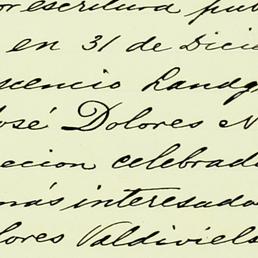 or escritura pub
en 31 de Dici
scencio Landg
José Dolores N
ccion celebrada
más interesado
lores Valdiviels